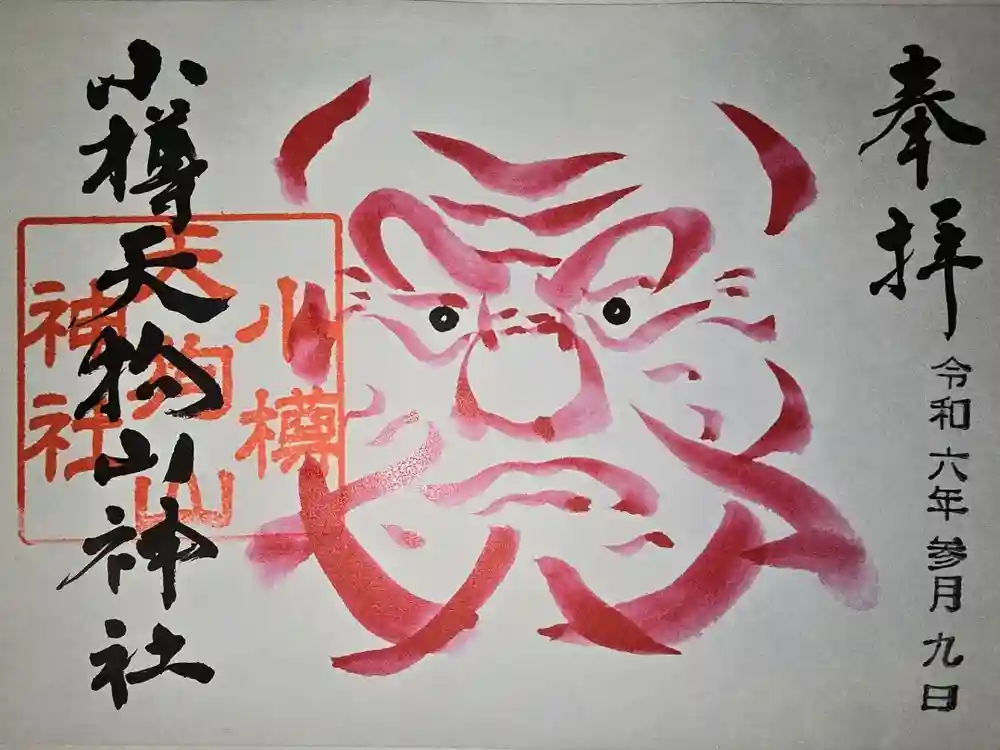 奉拝
令和六年参月九日
小樽
天狗山
神社
小樽天狗山神社